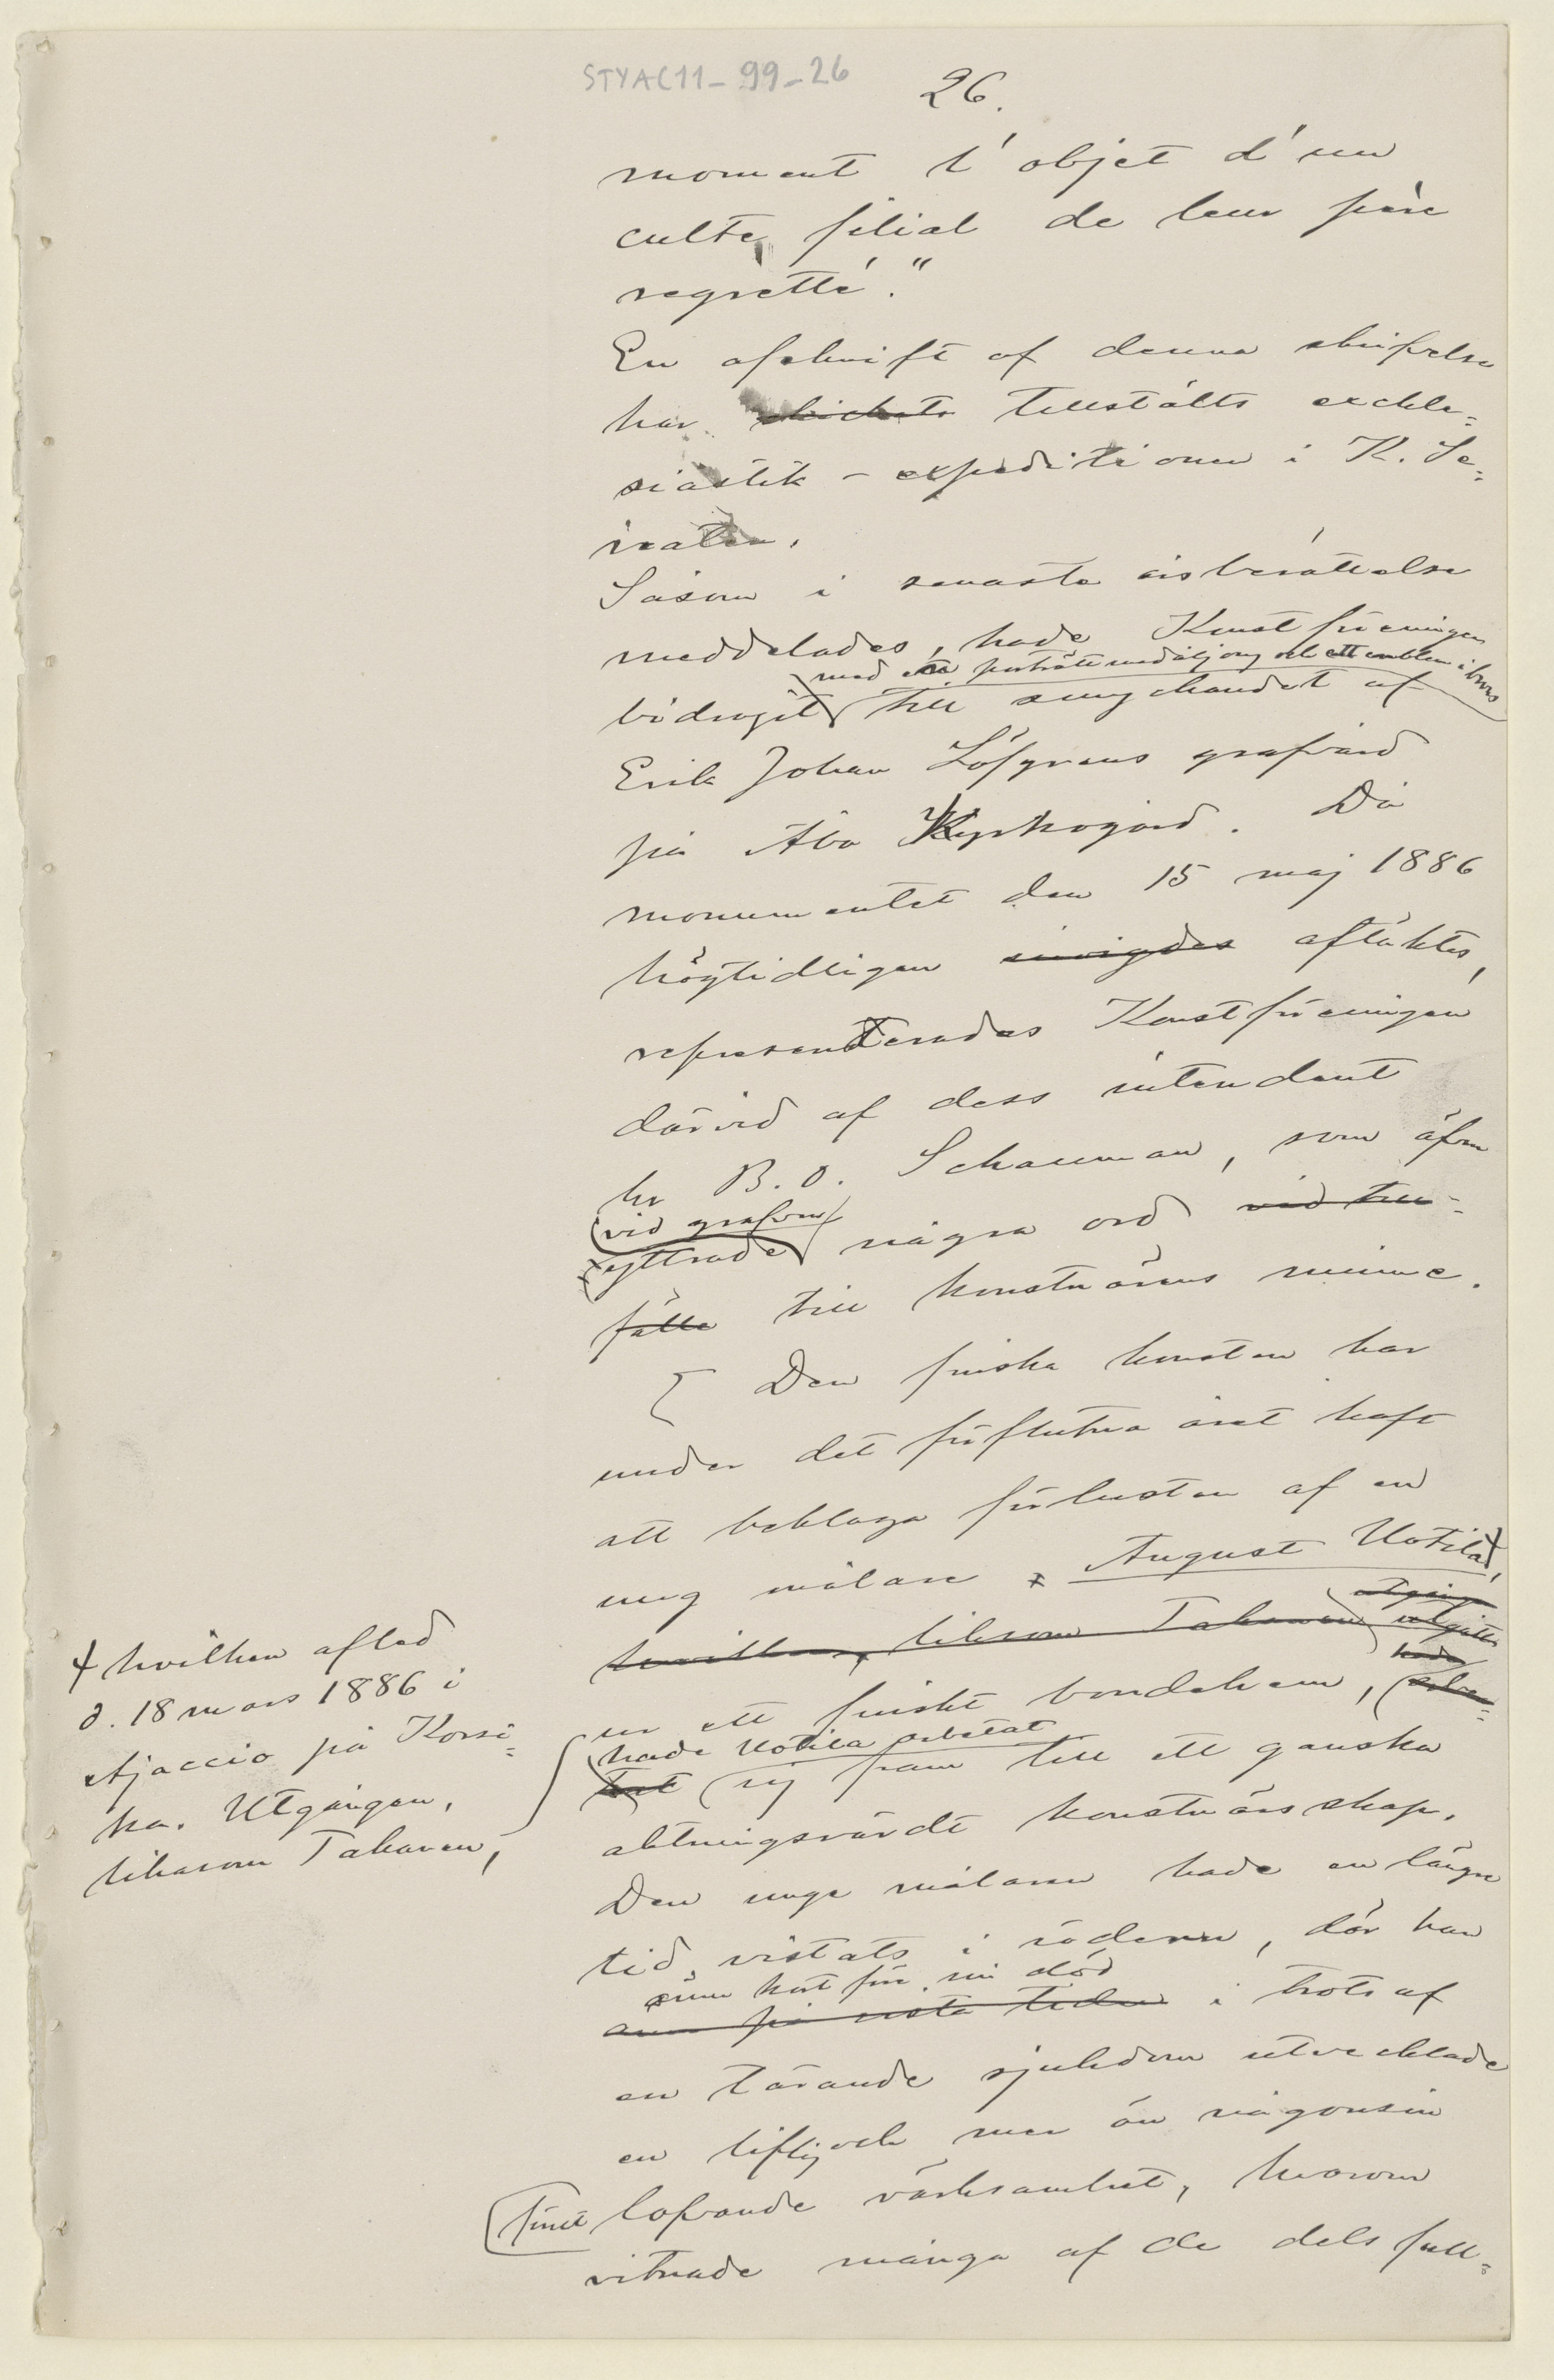 STYAC11-99-26
26.
moment l'objet d'un
culte filial de leur père
regretté."
En afskrift af denna skrifvelse
har skickats tillstälts eckle=
siastik-expeditionen i K. Se=
naten.
Såsom i senaste årsberättelse
meddelades, hade Konstföreningen
med ett porträttmedaljong och ett emblem i brons
bidragit till smyckandet af
Erik Johan Löfgrens grafvård
på Åbo Kyrkogård. Då
monumentet den 15 maj 1886
högtidligen invigdes aftäktes,
representerades Konstföreningen
därvid af dess intendent
hr B. O. Schauman, som äfven
vid grafven
yttrade några ord vid till=
fälle till konstnärens minne.
Den finska konsten har
under det förflutna året haft
att beklaga förlusten af en
ung målare August Uotila,
utgången
hvilken, liksom Takanen utgått
hade
ur ett finskt bondehem, arbe=
hade Uotila arbetat
tat sig fram till ett ganska
aktningsvärdt konstnärsskap.
Den unge målaren hade en längre
tid vistats i södern, där han
ännu kort före sin död
ännu på sista tiden i trots af
en tärande sjukdom utvecklade
en liflig och mer än någonsin
förut lofvande värksamhet, hvarom
vitnade många af de dels full=
+ hvilken afled
d. 18 mars 1886 i
Ajaccio på Korsi=
ka. Utgången,
liksom Takanen,